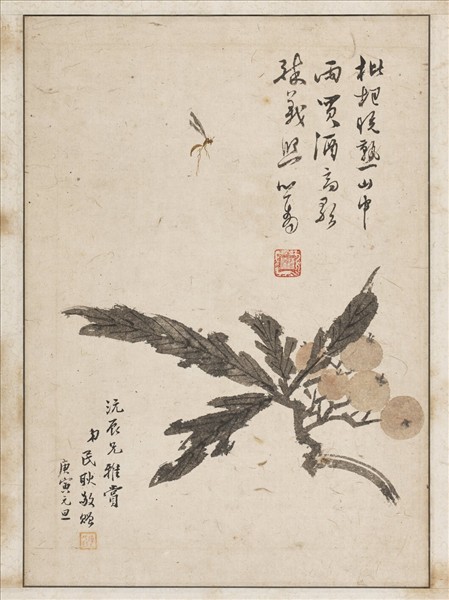 枇杷晚熟山中
雨買酒高歌
義熙 心畬
沅辰兄雅賞
民耿敬贈
庚寅元旦